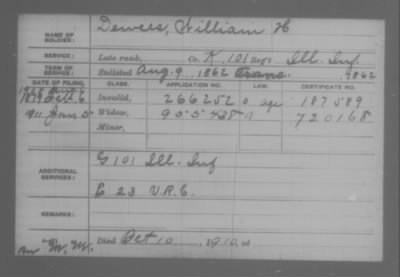 NAME OF SOLDIER: Dewees, William H
SERVICE: Late rank, Co. K, 101 Reg't Ill. Inf.
TERM OF SERVICE: Enlisted Aug. 9, 1862 , 1862
DATE OF FILING. CLASS. APPLICATION NO. LAW. CERTIFICATE NO.
1879 Feb. 6 Invalid, 266252 187589
1911 Jan 5 Widow, 955438 720168
Minor,
G 101 Ill. Inf
ADDITIONAL SERVICES:
E 23 V.R.C.
REMARKS:
Died Oct 10, 1910, at